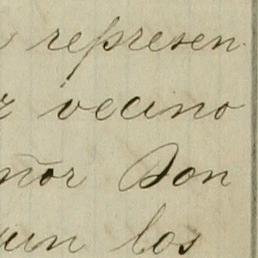 represen
vecino
ñor Don
un los